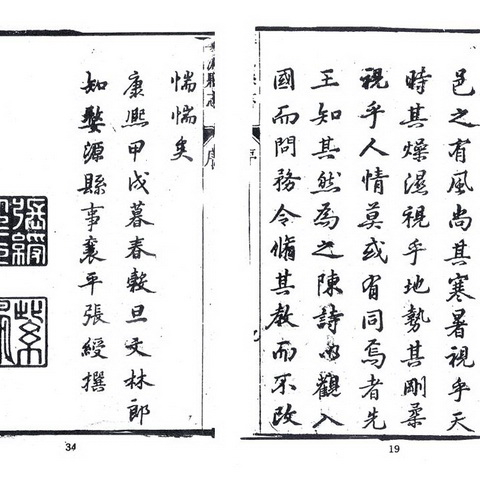 邑之有風尚其寒暑視乎天
時其燥濕視乎地勢其剛柔
視乎人情莫或有同焉者先
王知其然為之陳詩以觀入
國而問務令脩其教而不改
19
序
惴惴矣
康熙甲戌暮春穀旦文林郎
知婺源縣事襄平張綬撰
張綬
紫
34